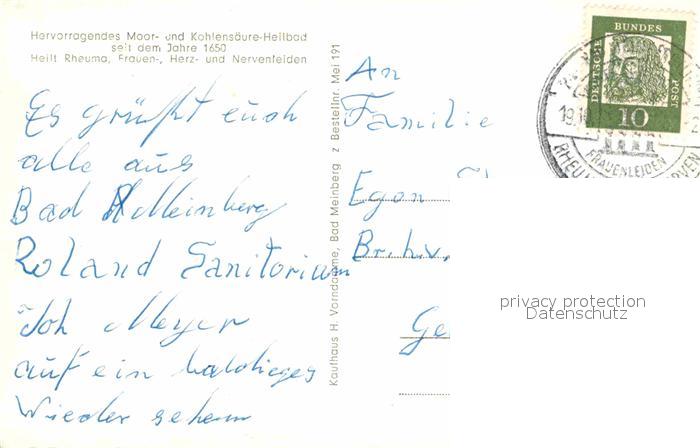 Hervorragendes Moor- und Kohlensäure-Heilbad
seit dem Jahre 1650
Heilt Rheuma, Frauen-, Herz- und Nervenleiden
Es grüßt euch
alle aus
Bad Meinberg
Roland Sanitorium
Joh Meyer
auf ein baldieges
Wieder sehen
Kaufhaus H. Vorndamme, Bad Meinberg z Bestellnr. Mei 191
An
Familie
Egon
Br.h.v.
Ge
DEUTSCHE
BUNDES
POST
10
19.10
FRAUENLEIDEN
RHEU
RVEN
privacy protection
Datenschutz